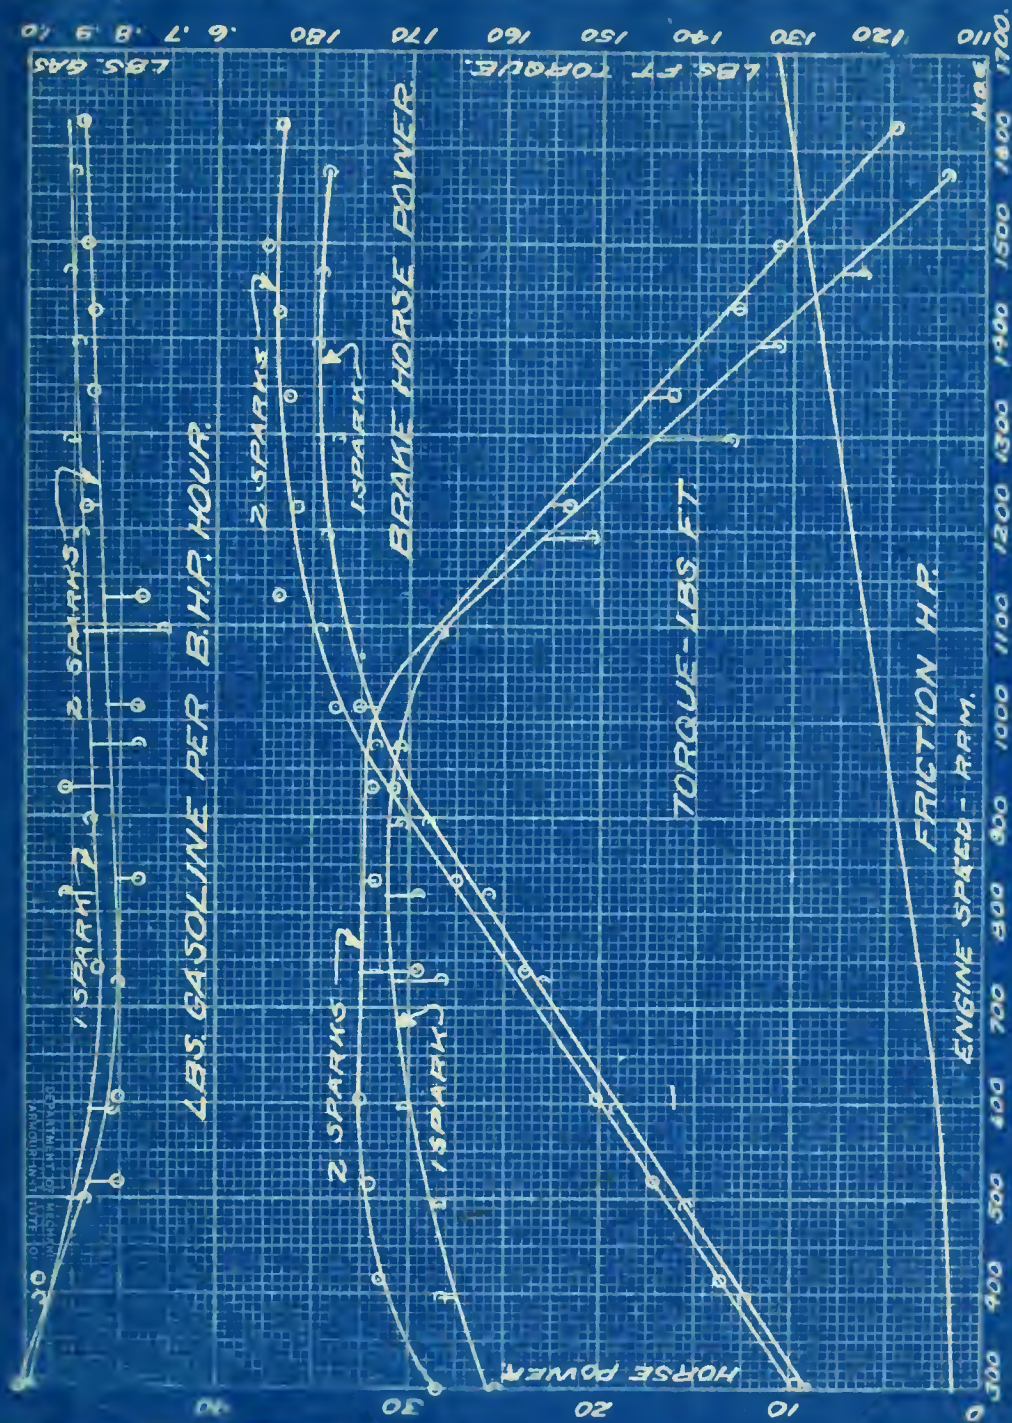 1.0 .9 .8 .7 .6
180 170 160 150 140 130 120 110
LBS. GAS
LBS. FT. TORQUE.
1 SPARK
2 SPARKS
LBS. GASOLINE PER B.H.P. HOUR.
2 SPARKS
1 SPARK
BRAKE HORSE POWER.
2 SPARKS
1 SPARK
TORQUE-LBS. FT.
FRICTION H.P.
ENGINE SPEED - R.P.M.
300 400 500 600 700 800 900 1000 1100 1200 1300 1400 1500 1600 1700.
HORSE POWER
40 30 20 10 0
DEPARTMENT OF
ARMOUR INSTITUTE OF